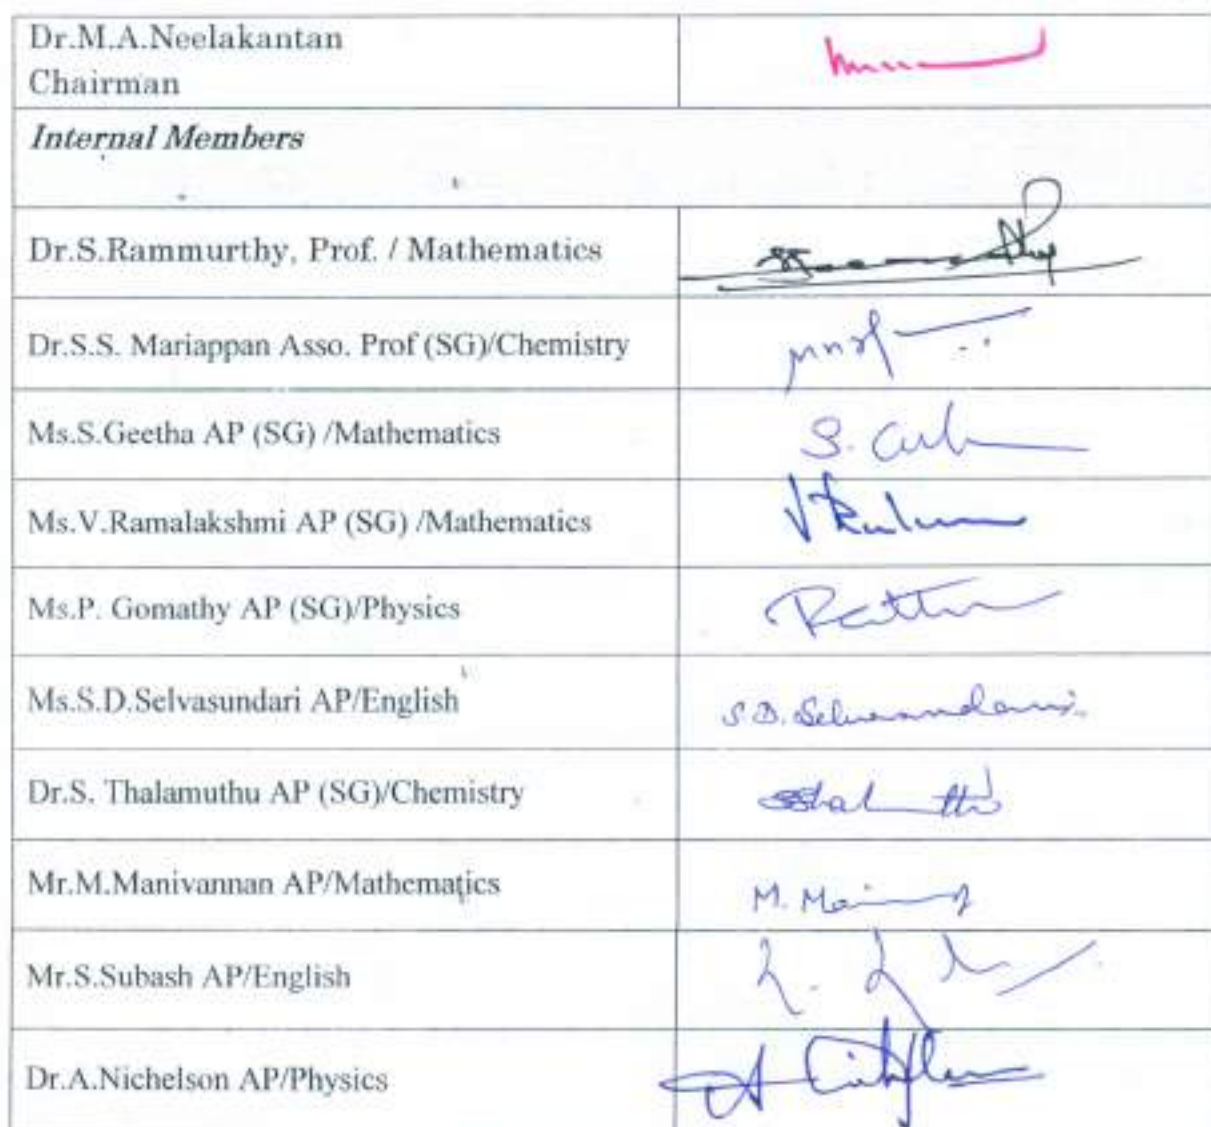 Dr.M.A.Neelakantan
Chairman
Internal Members
Dr.S.Rammurthy, Prof. / Mathematics
Dr.S.S. Mariappan Asso. Prof (SG)/Chemistry
Ms.S.Geetha AP (SG) /Mathematics
S.
Ms.V.Ramalakshmi AP (SG) /Mathematics
Ms.P. Gomathy AP (SG)/Physics
Ms.S.D.Selvasundari AP/English
S.D.Selvasundari
Dr.S. Thalamuthu AP (SG)/Chemistry
Mr.M.Manivannan AP/Mathematics
M.
Mr.S.Subash AP/English
Dr.A.Nichelson AP/Physics